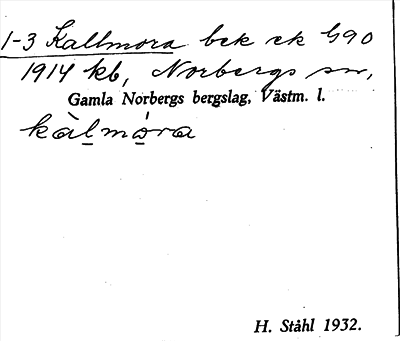 1-3 Kallmora bek ek G90
1914 kb, Norbergs sn,
Gamla Norbergs bergslag, Västm. l.
kàl̲mó̲ra
H. Ståhl 1932.